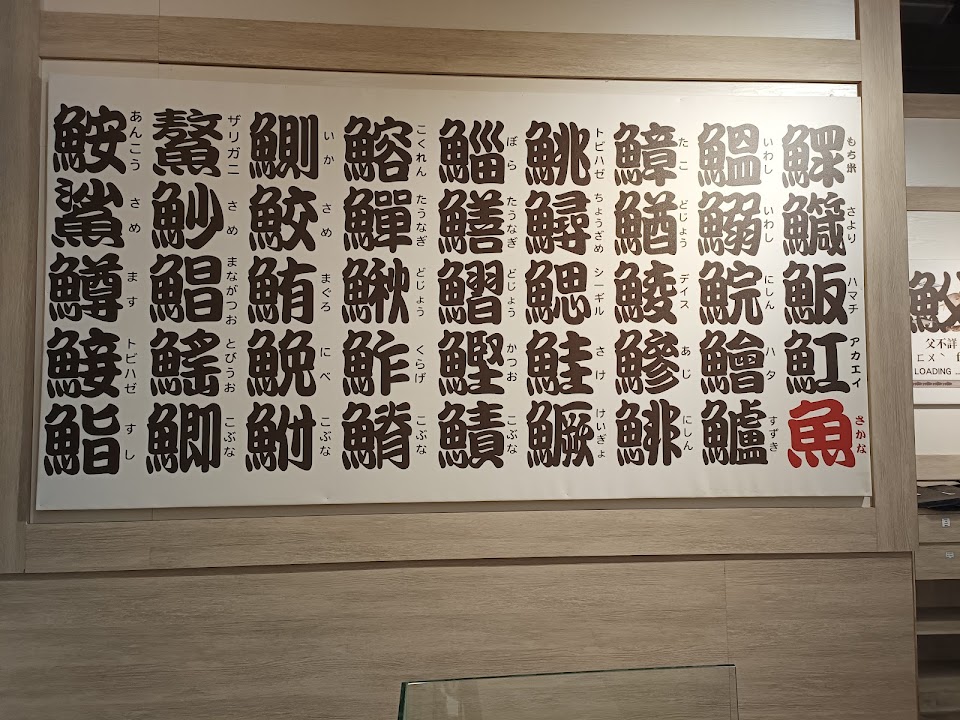 鰥 もち米
鱵 さより
魬 ハマチ
魟 アカエイ
魚 さかな
鰛 いわし
鰯 いわし
鯇 にしん
鱠 ハタ
鱸 すずき
鱆 たこ
鰌 どじょう
鯪 デイス
鰺 あじ
鯡 にしん
鮡 トビハゼ
鱘 ちょうざめ
鰓 シーギル
鮭 さけ
鱖 けいぎょ
鯔 ぼら
鱔 たうなぎ
鰼 どじょう
鰹 かつお
鰿 こぶな
鰫 こくれん
鱓 たうなぎ
鰍 どじょう
鮓 くらげ
こぶな
鰂 いか
鮫 さめ
鮪 まぐろ
鮸 にべ
鮒 こぶな
鰲 ザリガニ
魦 さめ
鯧 まながつお
鰩 とびうお
鯽 こぶな
鮟 あんこう
鯊 さめ
鱒 ます
鯜 トビハゼ
鮨 すし
父不詳
LOADING